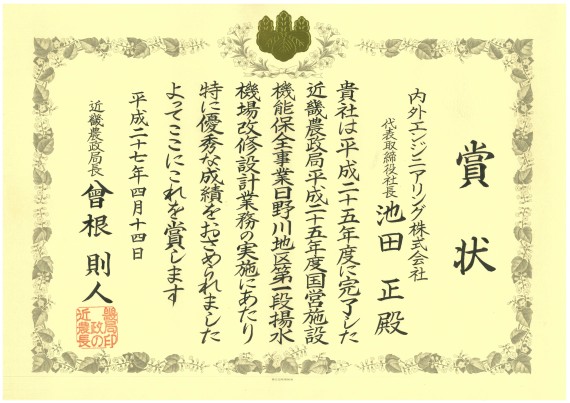 賞状
内外エンジニアリング株式会社
代表取締役社長 池田 正 殿
貴社は平成二十五年度に完了した
近畿農政局平成二十五年度国営施設
機能保全事業日野川地区第一段揚水
機場改修設計業務の実施にあたり
特に優秀な成績をおさめられました
よってここにこれを賞します
平成二十七年四月十四日
近畿農政局長 曾根 則人
近畿農政局長の印